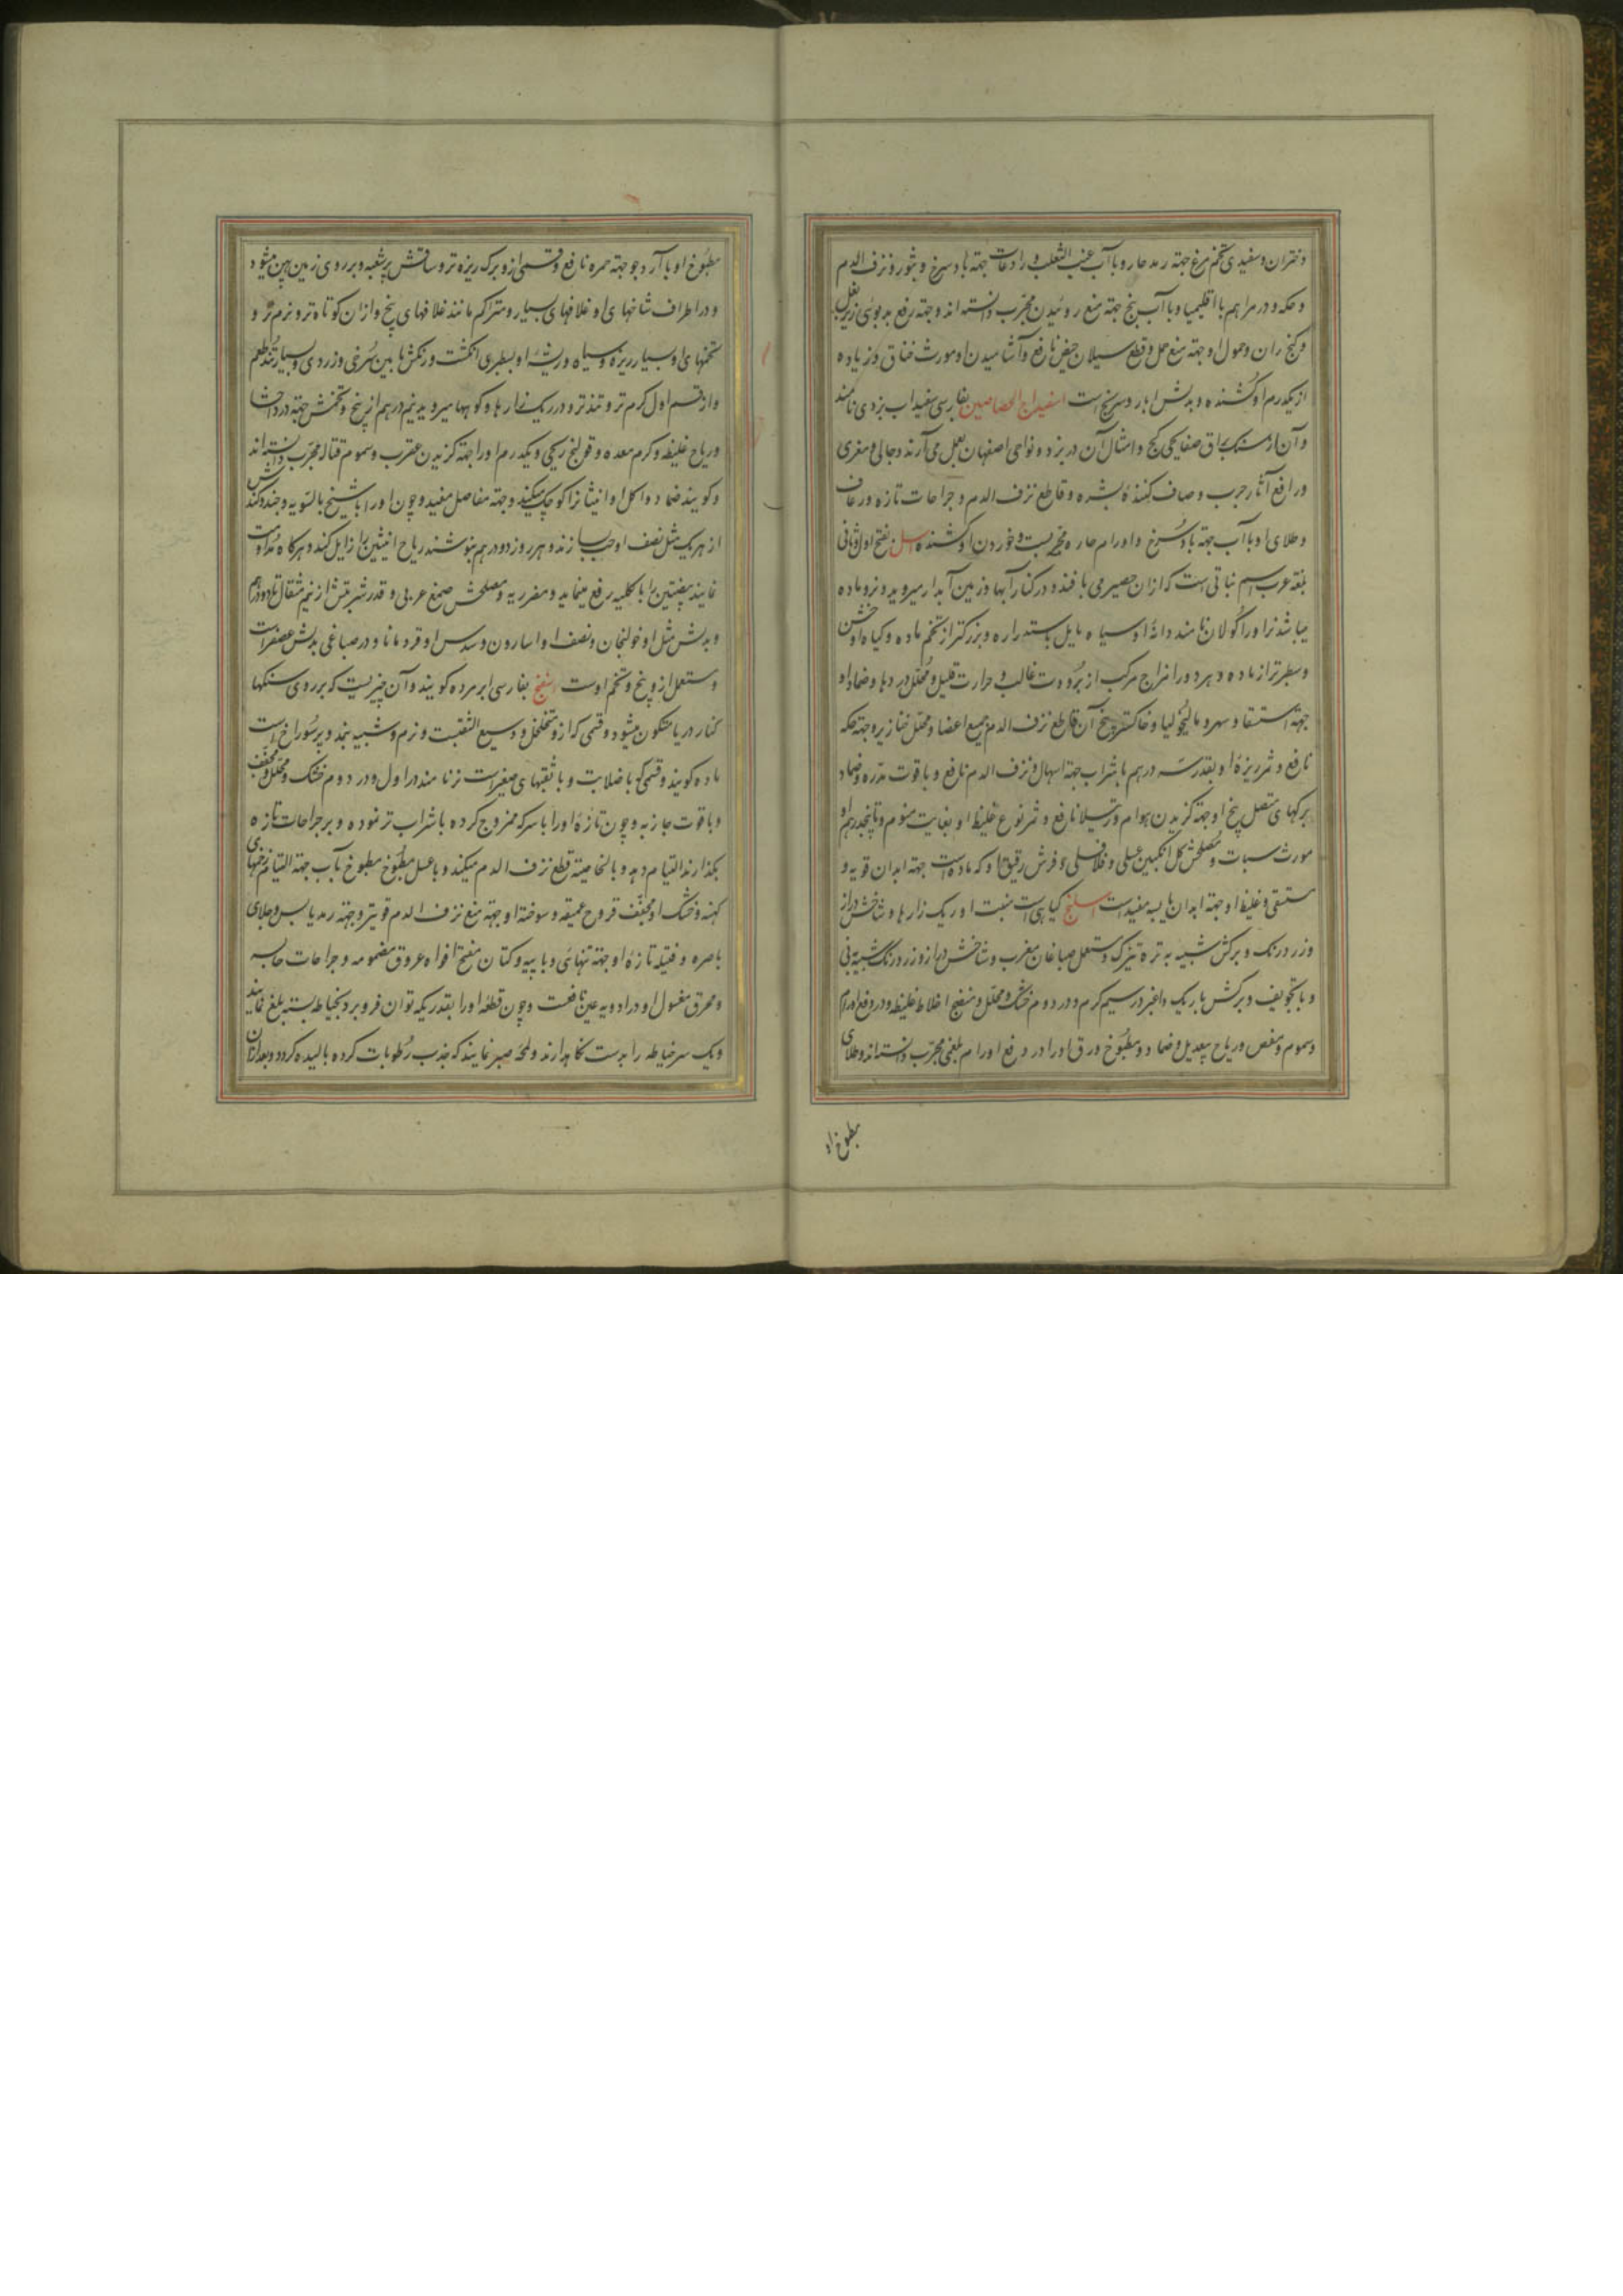 دختران و سفیدی تخم مرغ جهة رمد حار و با آب عنب الثعلب و رادعات جهة باد سرخ و بثور و نزف الدم
و حکه و در مراهم با اقلیمیا و با آب بنج جهة منع روئیدن مجرب دانسته اند و جهة رفع بدبوئی زیر بغل
و کنج ران و حمول او جهة منع حمل و قطع سیلان حیض نافع و آشامیدن او مورث خناق و زیاده
از یکدرم او کشنده و بدلش ابار و سرنج است اسفیداج الجصاصین بفارسی سفیداب یزدی نامند
و آن از سنک براق صفایحی کج و امثال آن در یزد و نواحی اصفهان بعمل می آرند و جالی و مغری
و رافع آثار جرب و صاف کنندهٔ بشره و قاطع نزف الدم و جراحات تازه و رعاف
و طلای او با آب جهة باد سرخ و اورام حاره مجربست و خوردن او کشنده اسل بفتح اول و ثانی
بلغة عرب اسم نباتی است که ازان حصیر می بافند و در کنار آبها و زمین آبدار میروید و نر و ماده
میباشد نر او را کولان نامند دانهٔ او سیاه مایل باستداره و بزرکتر از تخم ماده و کیاه او خشن
و سطبرتر از ماده و هر دو را مزاج مرکب از برودت غالب و حرارت قلیل و محلل در دها و ضماد او
جهة استسقا و سهر و مالیخولیا و خاکستر بیخ آن قاطع نزف الدم جمیع اعضا و محلل خنازیر و جهة حکه
نافع و ثمر ریزهٔ او بقدر سه درهم با شراب جهة اسهال و نزف الدم نافع و با قوت مدره و ضماد
برکهای متصل بیخ او جهة کزیدن هوام و رتیلا نافع و ثمر نوع غلیظ او بغایت منوم و تا پنجدرهم او
مورث سبات و مصلحش کل انکبین عسلی و فلافلی و فرش رقیق او که ماده است جهة ابدان قویه و
مستسقی و غلیظ او جهة ابدان یابسه مفیدست اسلنج کیاهی است منبت او ریک زارها و شاخش دراز
و زرد رنک و برکش شبیه به تره تیزک و مستعمل صباغان مغرب و شاخش دراز و زرد رنک شبیه به نی
و با تجویف و برکش باریک و اغبر در سیم کرم و در دوم خشک و محلل و منضج اخلاط غلیظه و در دفع اورام
و سموم و مغص و ریاح بیعدیل و ضماد و مطبوخ ورق او را در رفع اورام بلغمی مجرب دانسته اند و طلای
مطبوخ او
مطبوخ او با آرد جو جهة حمره نافع و قسمی از و برک ریزه تر و ساقش پر شعبه و بر روی زمین پهن میشود
و در اطراف شاخهای او غلافهای بسیار و متراکم مانند غلافهای بنج و ازان کوتاه تر و نرم تر و
تخمهای او بسیار ریزه و سیاه و ریشهٔ او بسطبری انکشت و رنکش مابین سرخی و زردی و بسیار تند طعم
و از قسم اول کرم تر و تند تر و در ریک زارها و کوهها میروید نیم درهم از بیخ و تخمش جهة درد احشا
و ریاح غلیظه و کرم معده و قولنج ریحی و یکدرم او را جهة کزیدن عقرب و سموم قتاله مجرب دانسته اند
و کویند ضماد و اکل او انثیان را کوچک میکند و جهة مفاصل مفید و چون او را با شیح بالسویه و خندوکش
از هر یک مثل نصف او حب سازند و هر روز دو درهم بنوشند ریاح انثیین را زایل کند و هر کاه مداومت
نمایند بیضتین را بالکلیه رفع مینماید و مضر ریه و مصلحش صمغ عربی و قدر شربتش از نیم مثقال تا دو درهم
و بدلش مثل او خولنجان و نصف او اسارون و سدس او قردمانا و در صباغی بدلش عصفر است
و مستعمل از و بیخ و تخم اوست اسفنج بفارسی ابر مرده کویند و آن چیزیست که بر روی سنکها
کنار دریا متکون میشود و قسمی که از و متخلخل و وسیع الثقبست و نرم و شبیه بنمد و پر سوراخ است
ماده کویند و قسمی که با صلابت و با ثقبهای صغیر است نر نامند در اول و در دوم خشک و محلل و مجفف
و با قوت جاذبه و چون تازهٔ او را با سرکه ممزوج کرده با شراب تر نموده و بر جراحات تازه
بکذارند التیام دهد و بالخاصیته قطع نزف الدم میکند و با عسل مطبوخ مطبوخ بآب جهة التیام زخمهای
کهنه و خشک او مجفف قروح عمیقه و سوختهٔ او جهة منع نزف الدم قویتر و جهة رمد یابس و جلای
باصره و فتیلهٔ تازهٔ او جهة تنهائی و با پیه و کتان مفتح افواه عروق مضمومه و جراحات جاسیه
و محرق مغسول او در ادویه عین نافعست و چون قطعهٔ او را بقدریکه توان فرو برد بخیاطه بسته بلع نمایند
و یک سر خیاطه را بدست نکاهدارند و لمحهٔ صبر نمایند که جذب رطوبات کرده بالیده کردد و بعد ازان